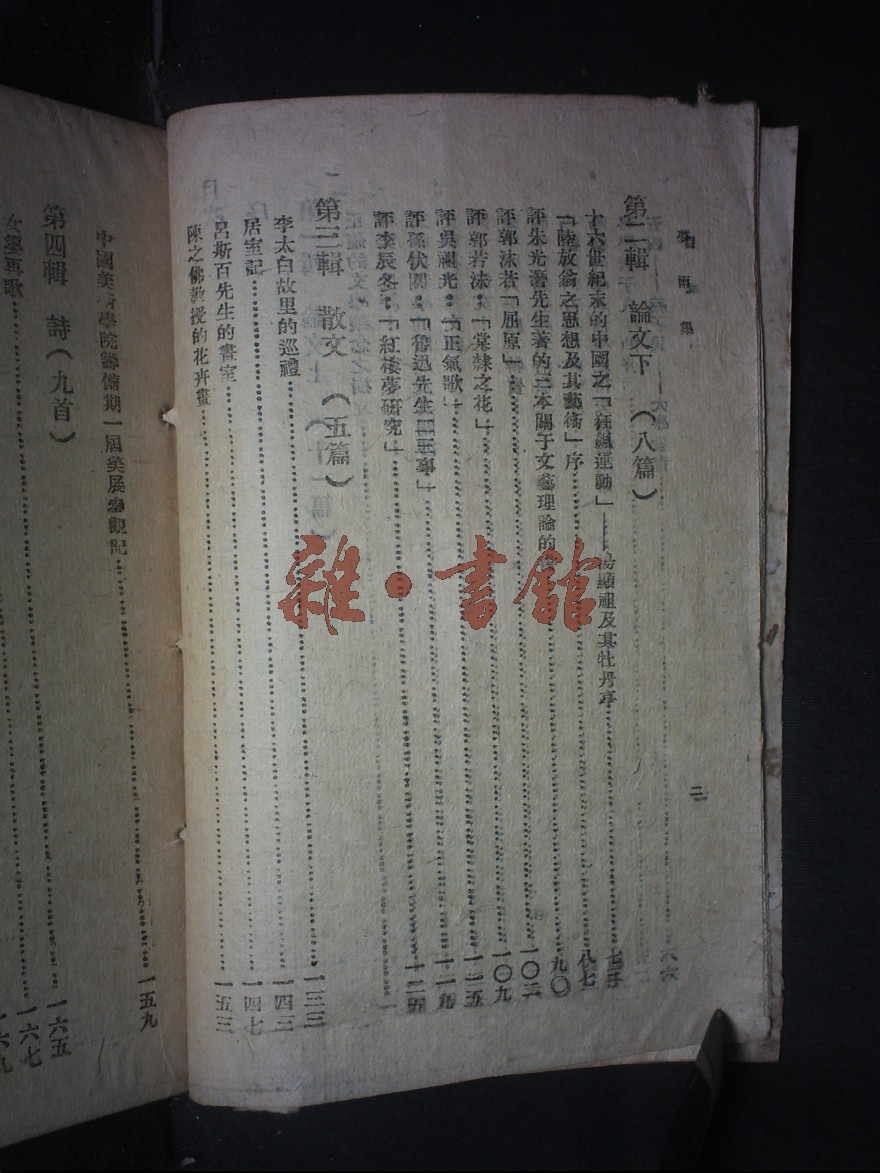 夢雨集
二
第二輯 論文下(八篇)
十六世紀末的中國之「狂飆運動」——湯顯祖及其牡丹亭……七三
「陸放翁之思想及其藝術」序……八七
評朱光潛先生著的二本關于文藝理論的書……九〇
評郭沫若「屈原」……一〇三
評郭若沫:「棠隸之花」……一〇九
評吳祖光:「正氣歌」……一一五
評孫伏園:「魯迅先生二三事」……一一九
評李辰冬:「紅樓夢研究」……一二五
第三輯 散文(五篇)
李太白故里的巡禮……一三三
居室記……一四三
呂斯百先生的畫室……一四七
陳之佛教授的花卉畫……一五三
中國美術學院籌備期一屆美展參觀記……一五九
第四輯 詩(九首)
一六五
再歌……一六七
雜·書館